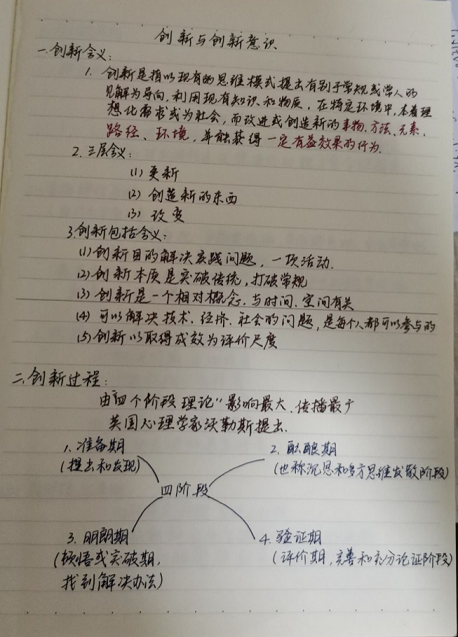 创新与创新意识
一.创新含义:
1. 创新是指以现有的思维模式提出有别于常规或常人的
见解为导向,利用现有知识和物质,在特定环境中,本着理
想化需求或为社会,而改进或创造新的事物.方法.元素.
路径、环境,并能获得一定有益效果的行为.
2.三层含义:
(1) 更新
(2) 创造新的东西
(3) 改变
3.创新包括含义:
(1) 创新目的解决实践问题,一项活动.
(2) 创新本质是突破传统,打破常规
(3) 创新是一个相对概念.与时间.空间有关
(4) 可以解决技术.经济.社会的问题,是每个人都可以参与的
(5) 创新以取得成效为评价尺度
二.创新过程:
由"四个阶段理论"影响最大.传播最广
英国心理学家沃勒斯提出.
1.准备期
(提出和发现)
2.酝酿期
(也称沉思和多方思维发散阶段)
四阶段
3.明朗期
(顿悟或突破期,
找到解决办法)
4.验证期
(评价期,完善和充分论证阶段)